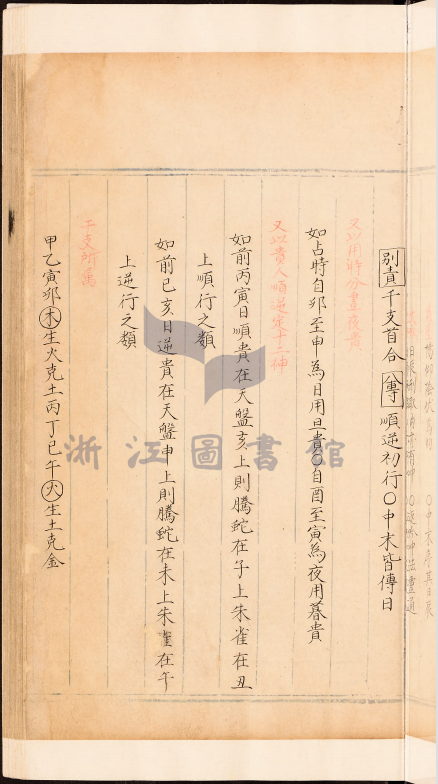 別責干支首合八專順逆初行〇中末皆傳日
又以用時分晝夜貴
如占時自卯至申為日用旦貴〇自酉至寅為夜用暮貴
又以貴人順逆定十二神
如前丙寅日順貴在天盤亥上則騰蛇在子上朱雀在丑
上順行之類
如前己亥日逆貴在天盤申上則騰蛇在未上朱雀在午
上逆行之類
干支所屬
甲乙寅卯木生火克土丙丁巳午火生土克金
浙江圖書館